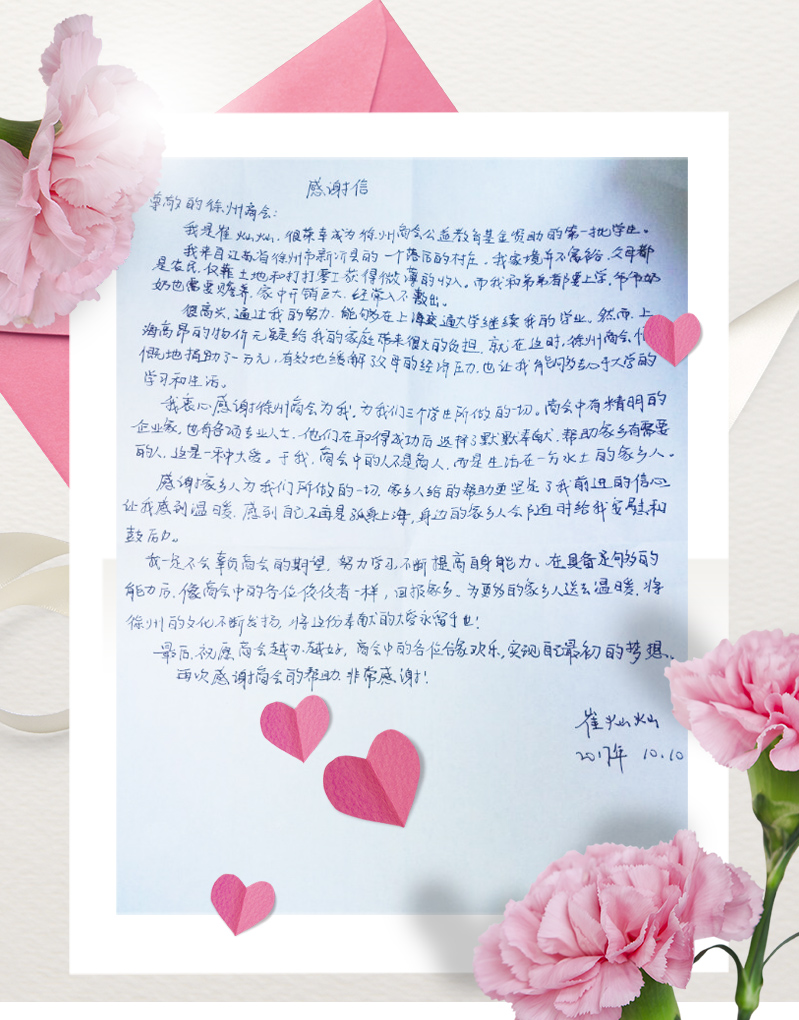 感谢信
尊敬的徐州商会:
我是崔灿灿,很荣幸成为徐州商会公益教育基金资助的第一批学生。
我来自江苏省徐州市新沂县的一个落后的村庄,我家境并不富裕,父母都
是农民,仅靠土地和打打零工获得微薄的收入。而我和弟弟都要上学,爷爷奶
奶也需要赡养,家中开销巨大,经常入不敷出。
很高兴,通过我的努力,能够在上海交通大学继续我的学业。然而,上
海高昂的物价无疑给我的家庭带来很大的负担,就在这时,徐州商会
慨地捐助了一万元,有效地缓解了父母的经济压力,也让我能够专心于大学的
学习和生活。
我衷心感谢徐州商会为我,为我们三个学生所做的一切。商会中有精明的
企业家,也有各项专业人士,他们在取得成功后选择了默默奉献,帮助家乡有需要
的人,这是一种大爱。于我,商会中的人不是商人,而是生活在一方水土的家乡人。
感谢家乡人为我们所做的一切,家乡人给的帮助更坚定了我前进的信心
让我感到温暖,感到自己不再是孤身上海,身边的家乡人会随时给我安慰和
鼓励。
我一定不会辜负商会的期望,努力学习,不断提高自身能力。在具备足够的
能力后,像商会中的各位佼佼者一样,回报家乡。为更多的家乡人送去温暖,将
徐州的文化不断发扬,将这份奉献的大爱永留于世!
最后,祝愿商会越办越好,商会中的各位阖家欢乐,实现自己最初的梦想。
再次感谢商会的帮助,非常感谢!
崔灿灿
2017年 10.10